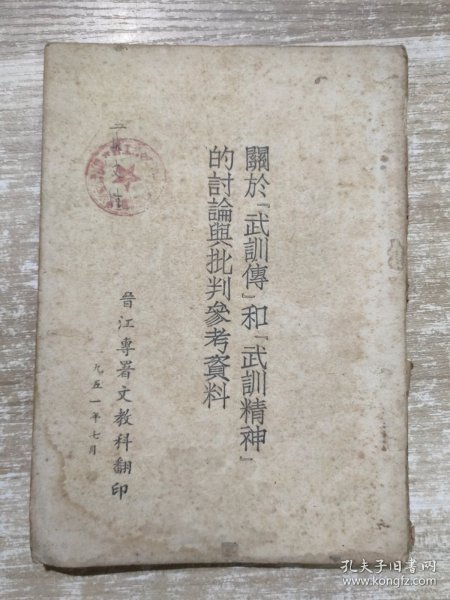 關於「武訓傳」和「武訓精神」
的討論與批判參考資料
晉江專署文教科翻印
一九五一年七月
孔夫子旧书网
www.kongfz.com